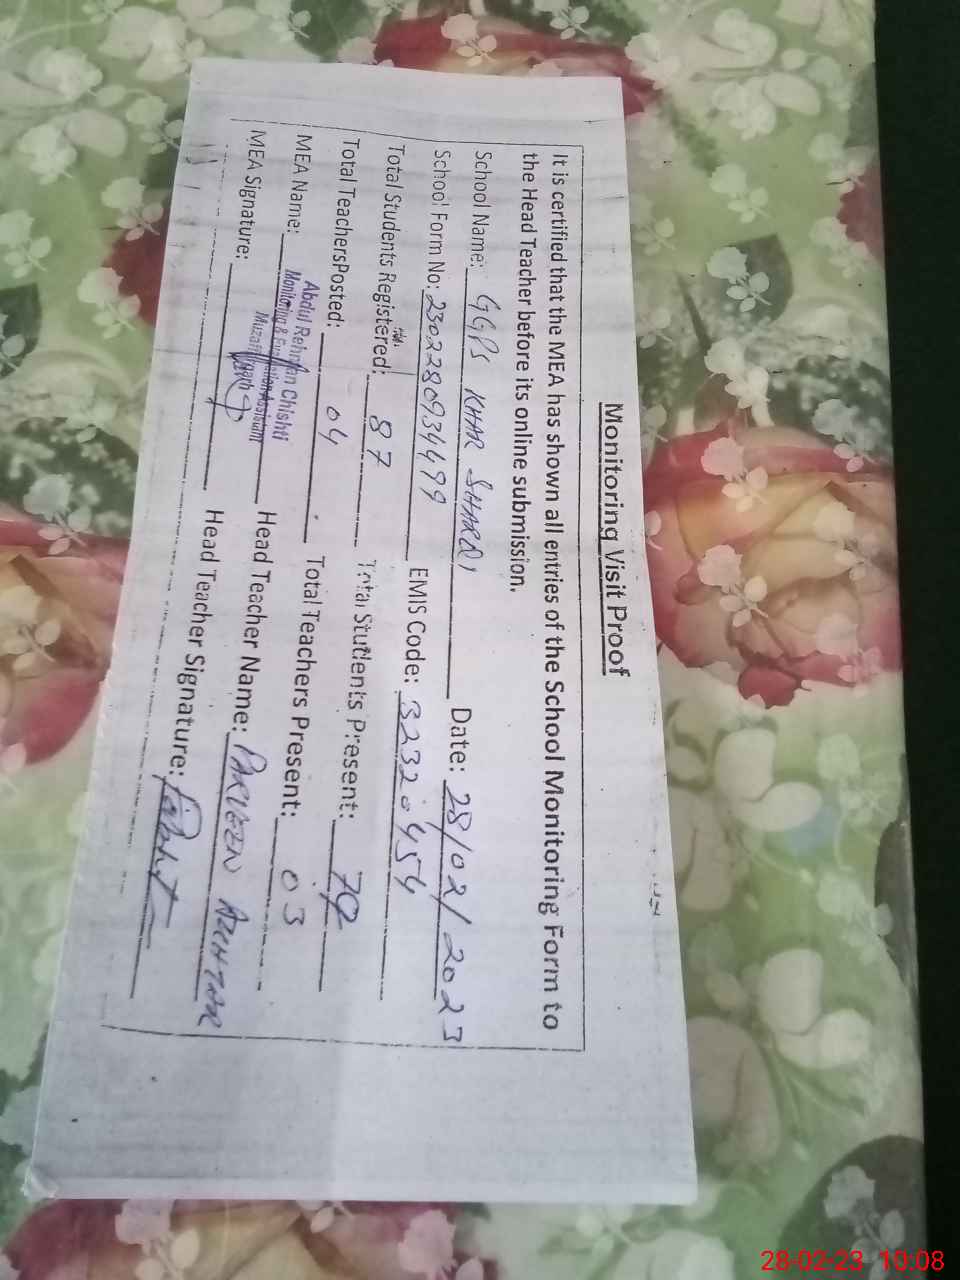 Monitoring Visit Proof
It is certified that the MEA has shown all entries of the School Monitoring Form to
the Head Teacher before its online submission.
School Name: GGPS KHAR SHARQI Date: 28/02/2023
School Form No: 2302280934499 EMIS Code: 32320454
Total Students Registered: 87 Total Students Present:
Total TeachersPosted: 04 Total Teachers Present: 03
MEA Name: Abdul Rehman Chishti Head Teacher Name: PARVEEN AKHTAR
Monitoring & Evaluation Assistant
MEA Signature: Head Teacher Signature:
28-02-23 10:08